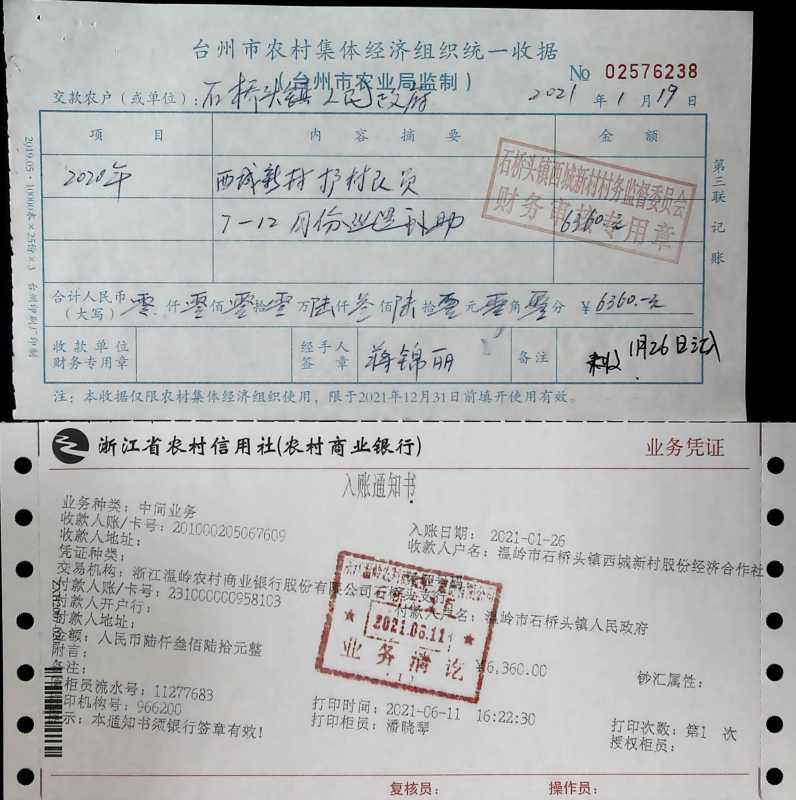 台州市农村集体经济组织统一收据
(台州市农业局监制)
No 02576238
交款农户(或单位):石桥头镇人民政府 2021年1月19日
项目 内容摘要 金额
2020年 西城新村 村民员
7-12月份巡逻补助 6360元
石桥头镇西城新村村务监督委员会
财务审核专用章
合计人民币(大写) 零仟零佰零拾零万陆仟叁佰陆拾零元零角零分 ¥6360.-元
收款单位财务专用章 经手人签章 蒋锦丽 备注 1月26日
注:本收据仅限农村集体经济组织使用,限于2021年12月31日前填开使用有效。
第三联 记账
2019.05·10000本×25份×3 台州印刷厂印制
浙江省农村信用社(农村商业银行) 业务凭证
入账通知书
业务种类:中间业务
收款人账/卡号:201000205067609 入账日期: 2021-01-26
收款人地址: 收款人户名:温岭市石桥头镇西城新村股份经济合作社
凭证种类:
交易机构:浙江温岭农村商业银行股份有限公司石桥头支行
付款人账/卡号:231000000958103 付款人户名:温岭市石桥头镇人民政府
付款人开户行:
付款人地址:
金额:人民币陆仟叁佰陆拾元整 ¥6,360.00
附言: 钞汇属性:
备注:
柜员流水号:11277683 打印时间:2021-06-11 16:22:30 打印次数:第1 次
印机构号:966200 打印柜员:潘晓琴 授权柜员:
示:本通知书须银行签章有效!
2021.06.11
业务清讫
复核员: 操作员: